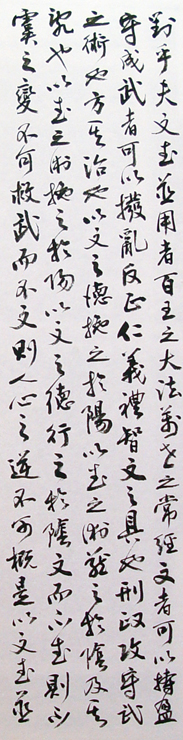 對乎夫文武並用者百王之大法萬世之常經文者可以持盈
守成武者可以撥亂反正仁義禮智文之具也刑政攻守武
之術也方其治也以文之德施之於陽以武之術藏之於陰及其
亂也以武之術施之於陽以文之德行之於陰文而不武則不
虞之變不可救武而不文則人心之逆不可概是以文武並